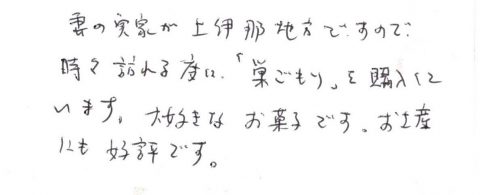 妻の実家が上伊那地方ですので
時々訪れる度に「巣ごもり」を購入して
います。大好きなお菓子です。お土産
にも好評です。